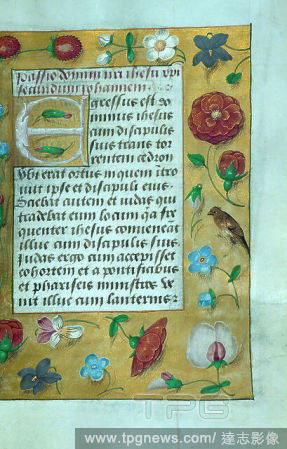 Passio domini nri ihesu xpi
secundum Johannem
Egressus est do
minus ihesus
cum discipulis
suis trans tor
rentem cedron
Vbi erat ortus in quem itro
iuit ipse et discipuli eius
Sciebat autem et iudas qui
tradebat eum locum qa fre
quenter ihesus conuenerat
illuc cum discipulis suis
Judas ergo cum accepisset
cohortem et a pontificibus
et phariseis ministros ve
nit illuc cum lanternis
TPG
www.tpgnews.com/ 達志影像